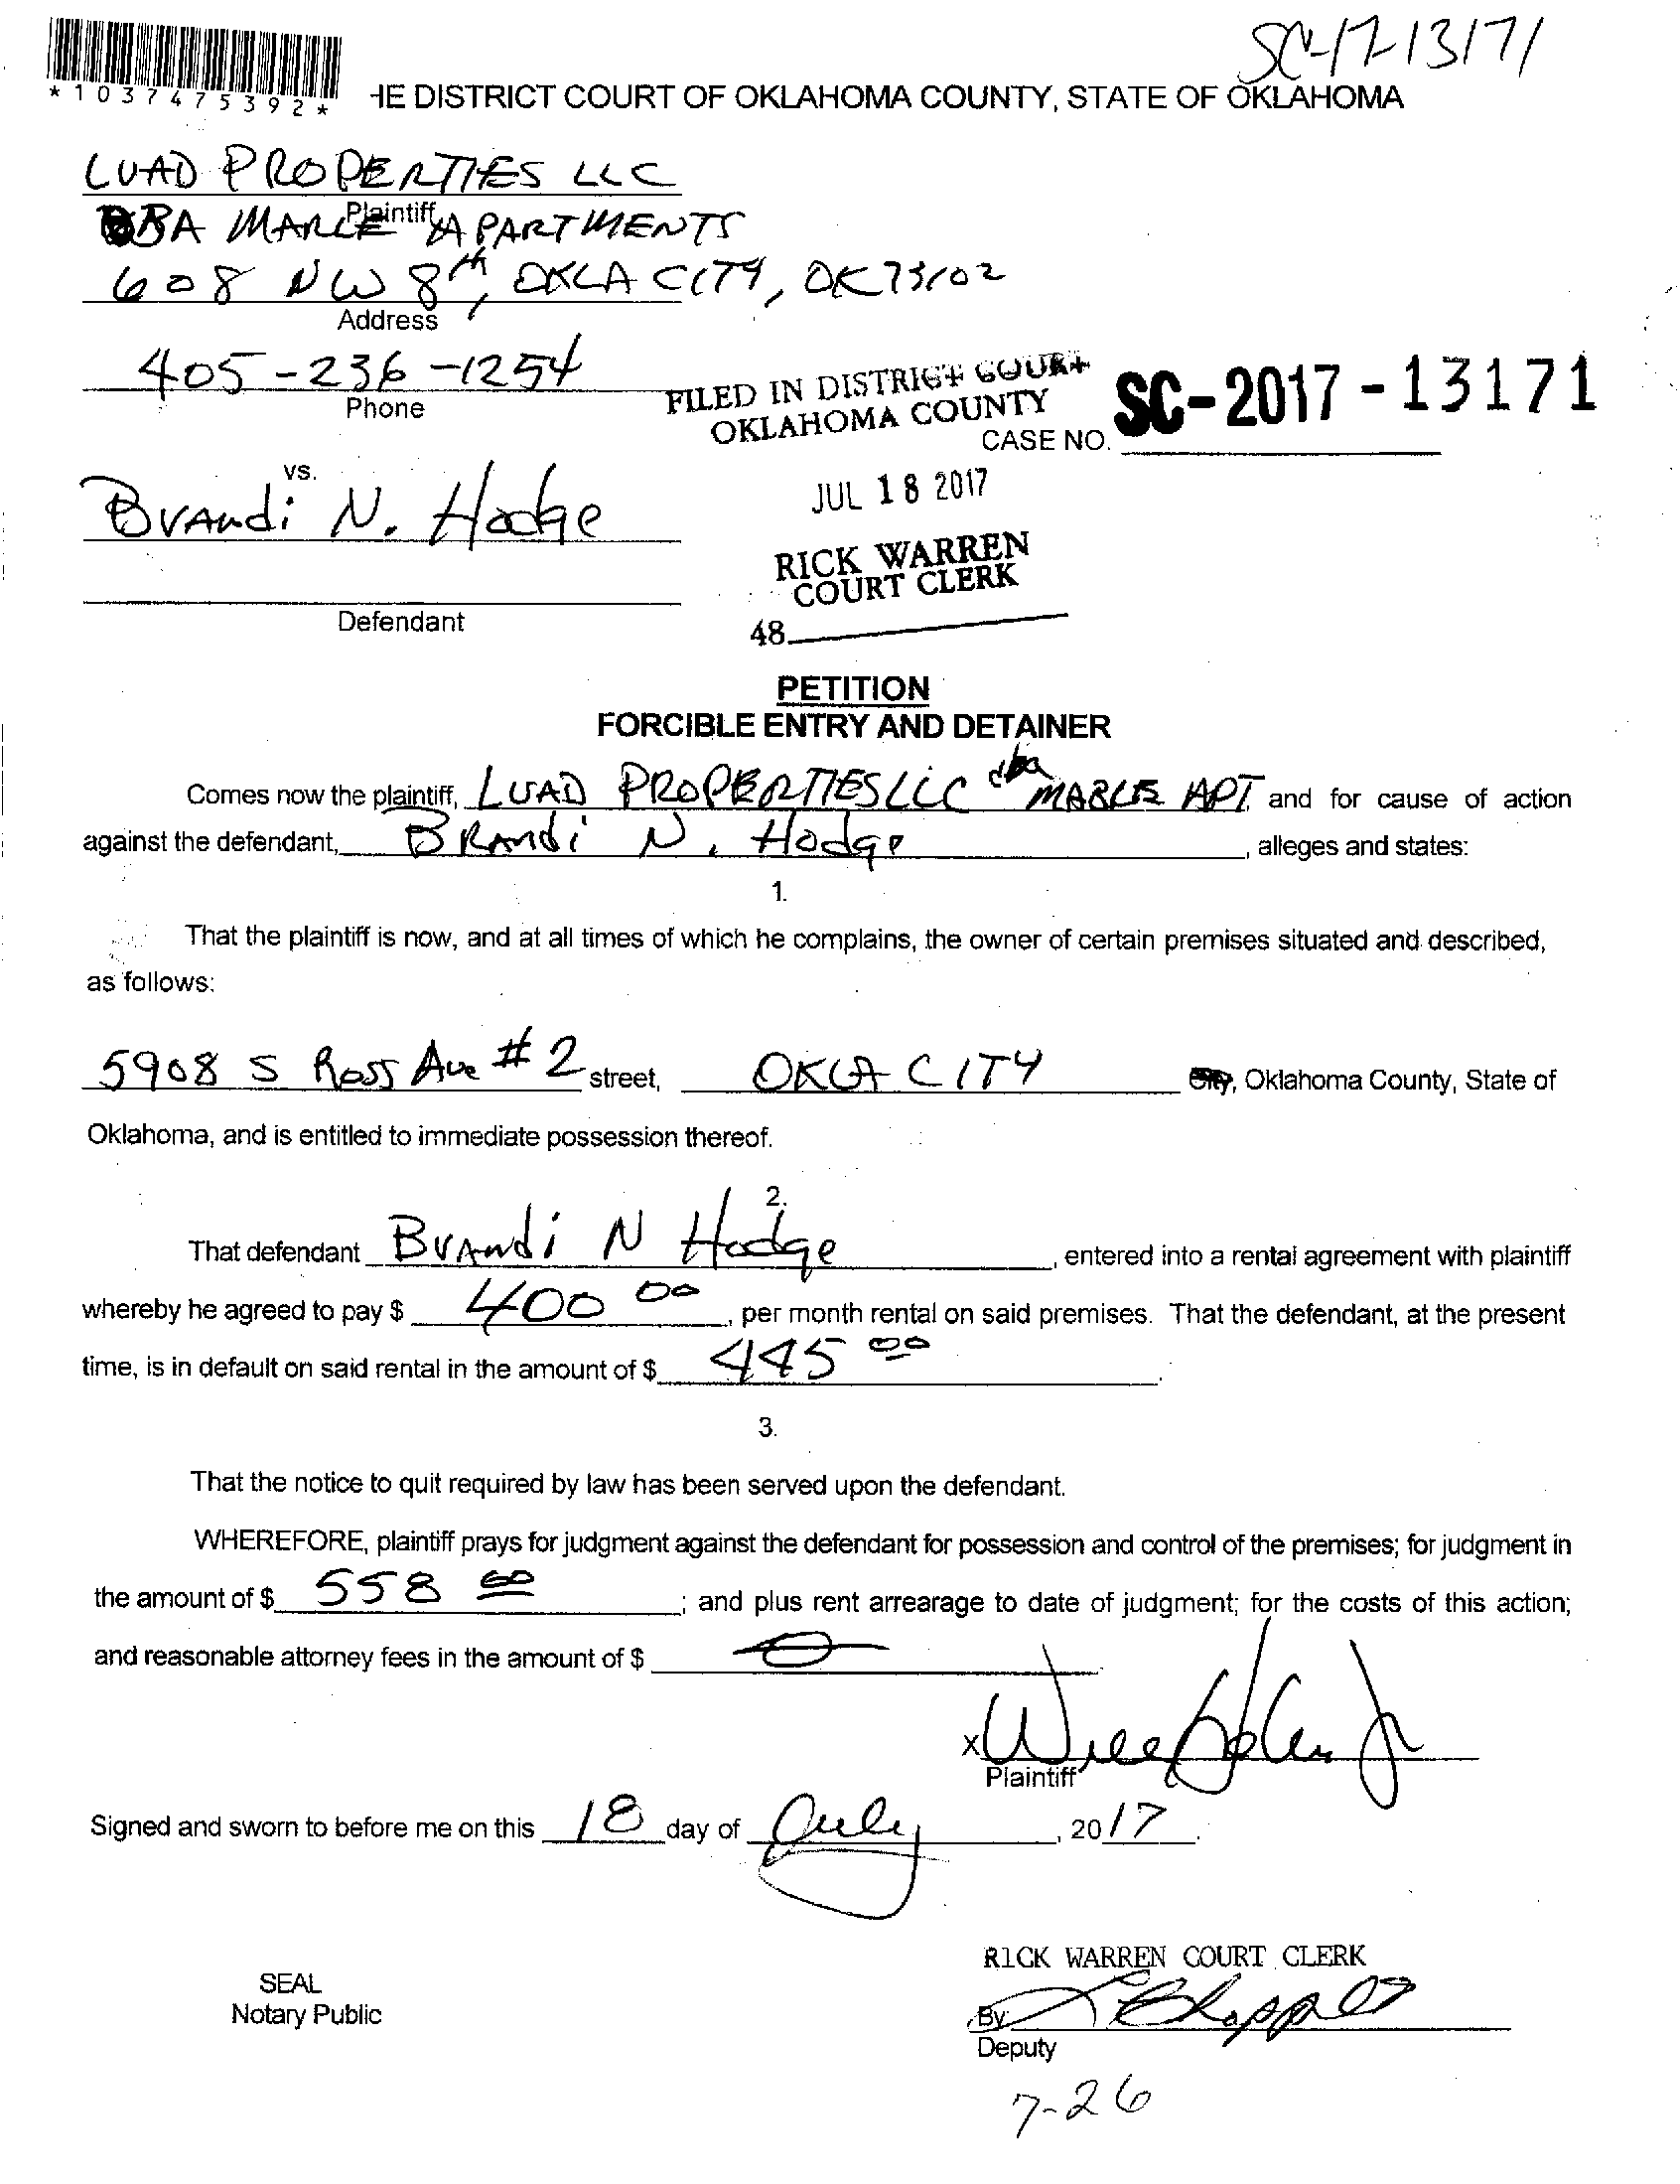 SC-17-13171
*1037475392*
HE DISTRICT COURT OF OKLAHOMA COUNTY, STATE OF OKLAHOMA
LUAD PROPERTIES LLC
Plaintiff
DBA MARLE APARTMENTS
608 NW 8th, OKLA CITY, OK 73102
Address
405-236-1254
Phone
FILED IN DISTRICT COURT
OKLAHOMA COUNTY
CASE NO. SC-2017-13171
vs.
JUL 18 2017
Brandi N. Hodge
RICK WARREN
COURT CLERK
Defendant
48
PETITION
FORCIBLE ENTRY AND DETAINER
Comes now the plaintiff, LUAD PROPERTIES LLC dba MARLE APT and for cause of action
against the defendant, BRANdi N. Hodge, alleges and states:
1.
That the plaintiff is now, and at all times of which he complains, the owner of certain premises situated and described,
as follows:
5908 S Ross Ave #2 street, OKLA CITY City, Oklahoma County, State of
Oklahoma, and is entitled to immediate possession thereof.
2.
That defendant Brandi N Hodge, entered into a rental agreement with plaintiff
whereby he agreed to pay $ 400 00, per month rental on said premises. That the defendant, at the present
time, is in default on said rental in the amount of $ 445 00.
3.
That the notice to quit required by law has been served upon the defendant.
WHEREFORE, plaintiff prays for judgment against the defendant for possession and control of the premises; for judgment in
the amount of $ 558 00; and plus rent arrearage to date of judgment; for the costs of this action;
and reasonable attorney fees in the amount of $ 0
X
Plaintiff
Signed and sworn to before me on this 18 day of July, 2017.
RICK WARREN COURT CLERK
SEAL
Notary Public
By:
Deputy
7-26